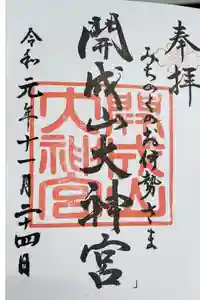 奉拝
みちのくのお伊勢さま
開成山大神宮
令和元年十一月二十四日
開成山
大神宮